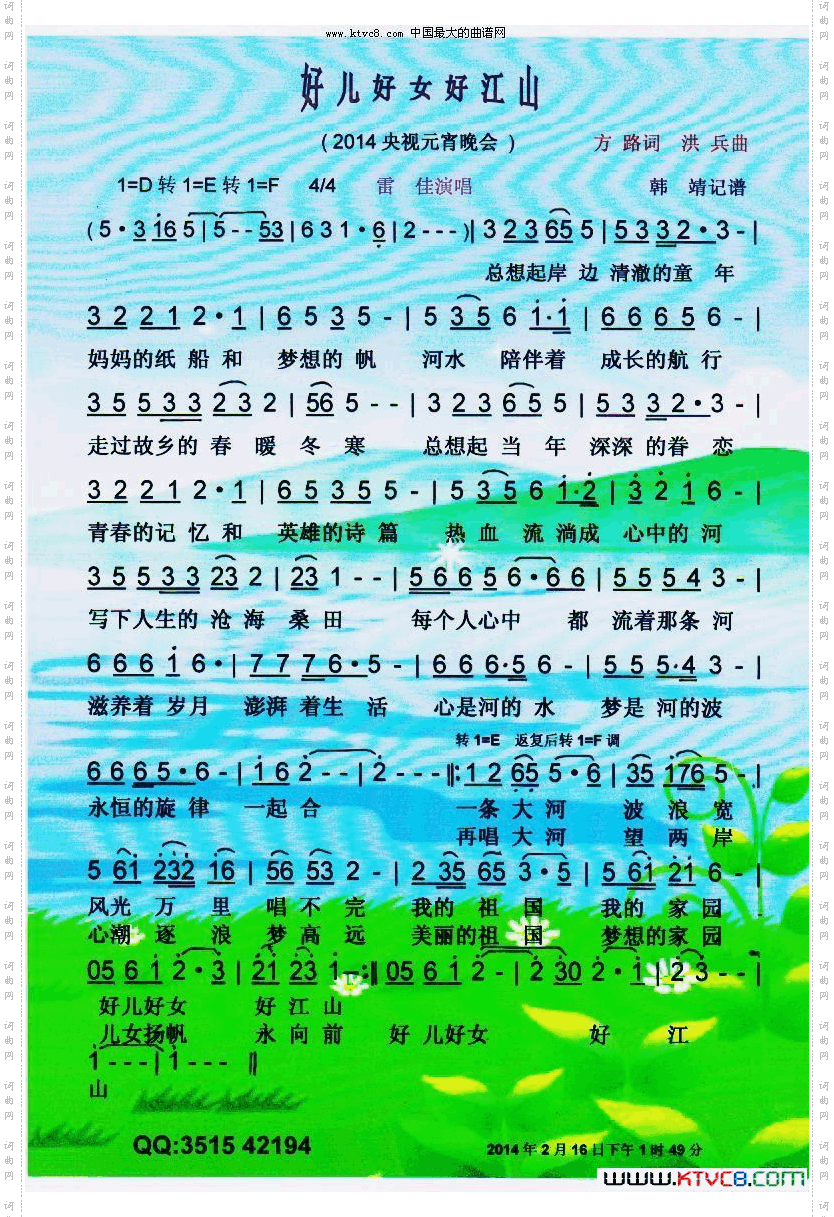 www.ktvc8.com 中国最大的曲谱网
好儿好女好江山
(2014央视元宵晚会) 方 路词 洪 兵曲
1=D 转 1=E 转 1=F 4/4 雷 佳演唱 韩 靖记谱
( 5 · 3 16 5 | 5 - - 53 | 6 3 1 · 6 | 2 - - - ) | 3 2 3 65 5 | 5 3 3 2 · 3 - |
总想起岸 边 清澈的童 年
3 2 2 1 2 · 1 | 6 5 3 5 - | 5 3 5 6 1 · 1 | 6 6 6 5 6 - |
妈妈的纸 船 和 梦想的 帆 河水 陪伴着 成长的航 行
3 5 5 3 3 2 3 2 | 56 5 - - | 3 2 3 6 5 5 | 5 3 3 2 · 3 - |
走过故乡的 春 暖 冬 寒 总想起 当 年 深深 的眷 恋
3 2 2 1 2 · 1 | 6 5 3 5 5 - | 5 3 5 6 1 · 2 | 3 2 1 6 - |
青春的记 忆 和 英雄的诗 篇 热 血 流 淌成 心中的 河
3 5 5 3 3 23 2 | 23 1 - - | 5 6 6 5 6 · 6 6 | 5 5 5 4 3 - |
写下人生的 沧 海 桑 田 每个人心中 都 流着那条 河
6 6 6 1 6 · | 7 7 7 6 · 5 - | 6 6 6 · 5 6 - | 5 5 5 · 4 3 - |
滋养着 岁月 澎湃 着生 活 心是河的 水 梦是 河的波
转 1=E 返复后转 1=F 调
6 6 6 5 · 6 - | 1 6 2 - - | 2 - - - ‖: 1 2 65 5 · 6 | 35 176 5 - |
永恒的旋 律 一起 合 一条 大 河 波 浪 宽
再唱 大 河 望 两 岸
5 61 232 16 | 56 53 2 - | 2 35 65 3 · 5 | 5 61 21 6 - |
风光 万 里 唱 不 完 我的 祖 国 我的 家 园
心潮 逐 浪 梦 高 远 美丽的祖 国 梦想的家 园
05 6 1 2 · 3 | 21 23 1 - :‖ 05 6 1 2 - | 2 30 2 · 1 | 2 3 - - |
好儿好女 好 江 山
儿女扬帆 永 向 前 好 儿好女 好 江
1 - - - | 1 - - - ‖
山
QQ:3515 42194
2014 年 2 月 16 日下午 1 时 49 分
www.KTVC8.COM